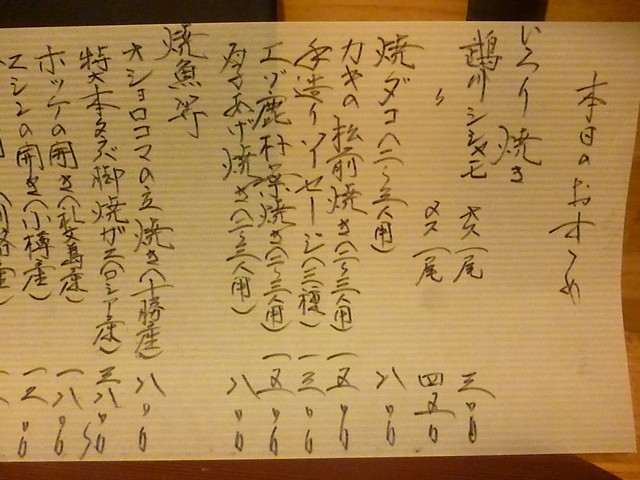 本日のおすゝめ
いろり焼き
鵡川シシャモ オス一尾 三〇〇
〃 メス一尾 四五〇
焼ダコ(二〜三人用) 八〇〇
カキの松前焼き(二〜三人用) 一五〇〇
手造りソーセージ(三種) 一三〇〇
エゾ鹿朴葉焼き(二〜三人用) 一五〇〇
厚あげ焼き(二〜三人用) 八〇〇
焼魚等
オショロコマの立焼き(十勝産) 八〇〇
特大本タラバ脚焼ガニ(ロシア産) 三八〇〇
ホッケの開き(礼文島産) 一八〇〇
ニシンの開き(小樽産) 一二〇〇